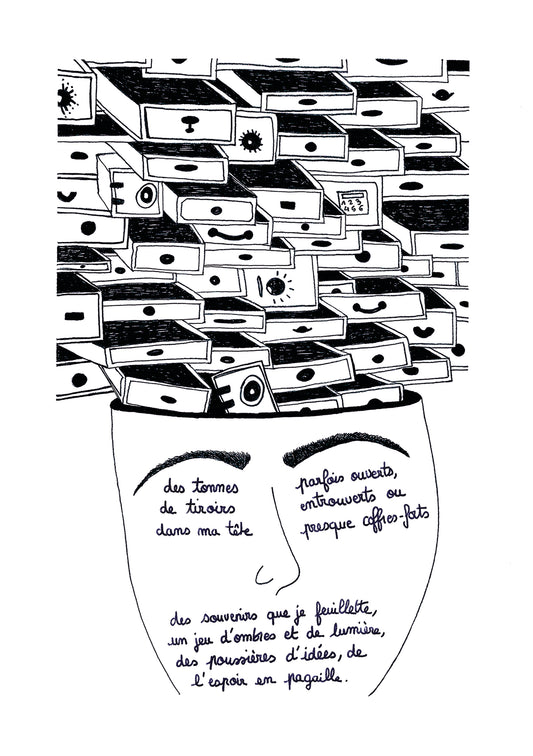 1 2 3
4 5 6
des tonnes
de tiroirs
dans ma tête
parfois ouverts,
entrouverts ou
presque coffres-forts
des souvenirs que je feuillette,
un jeu d'ombres et de lumière,
des poussières d'idées, de
l'espoir en pagaille.